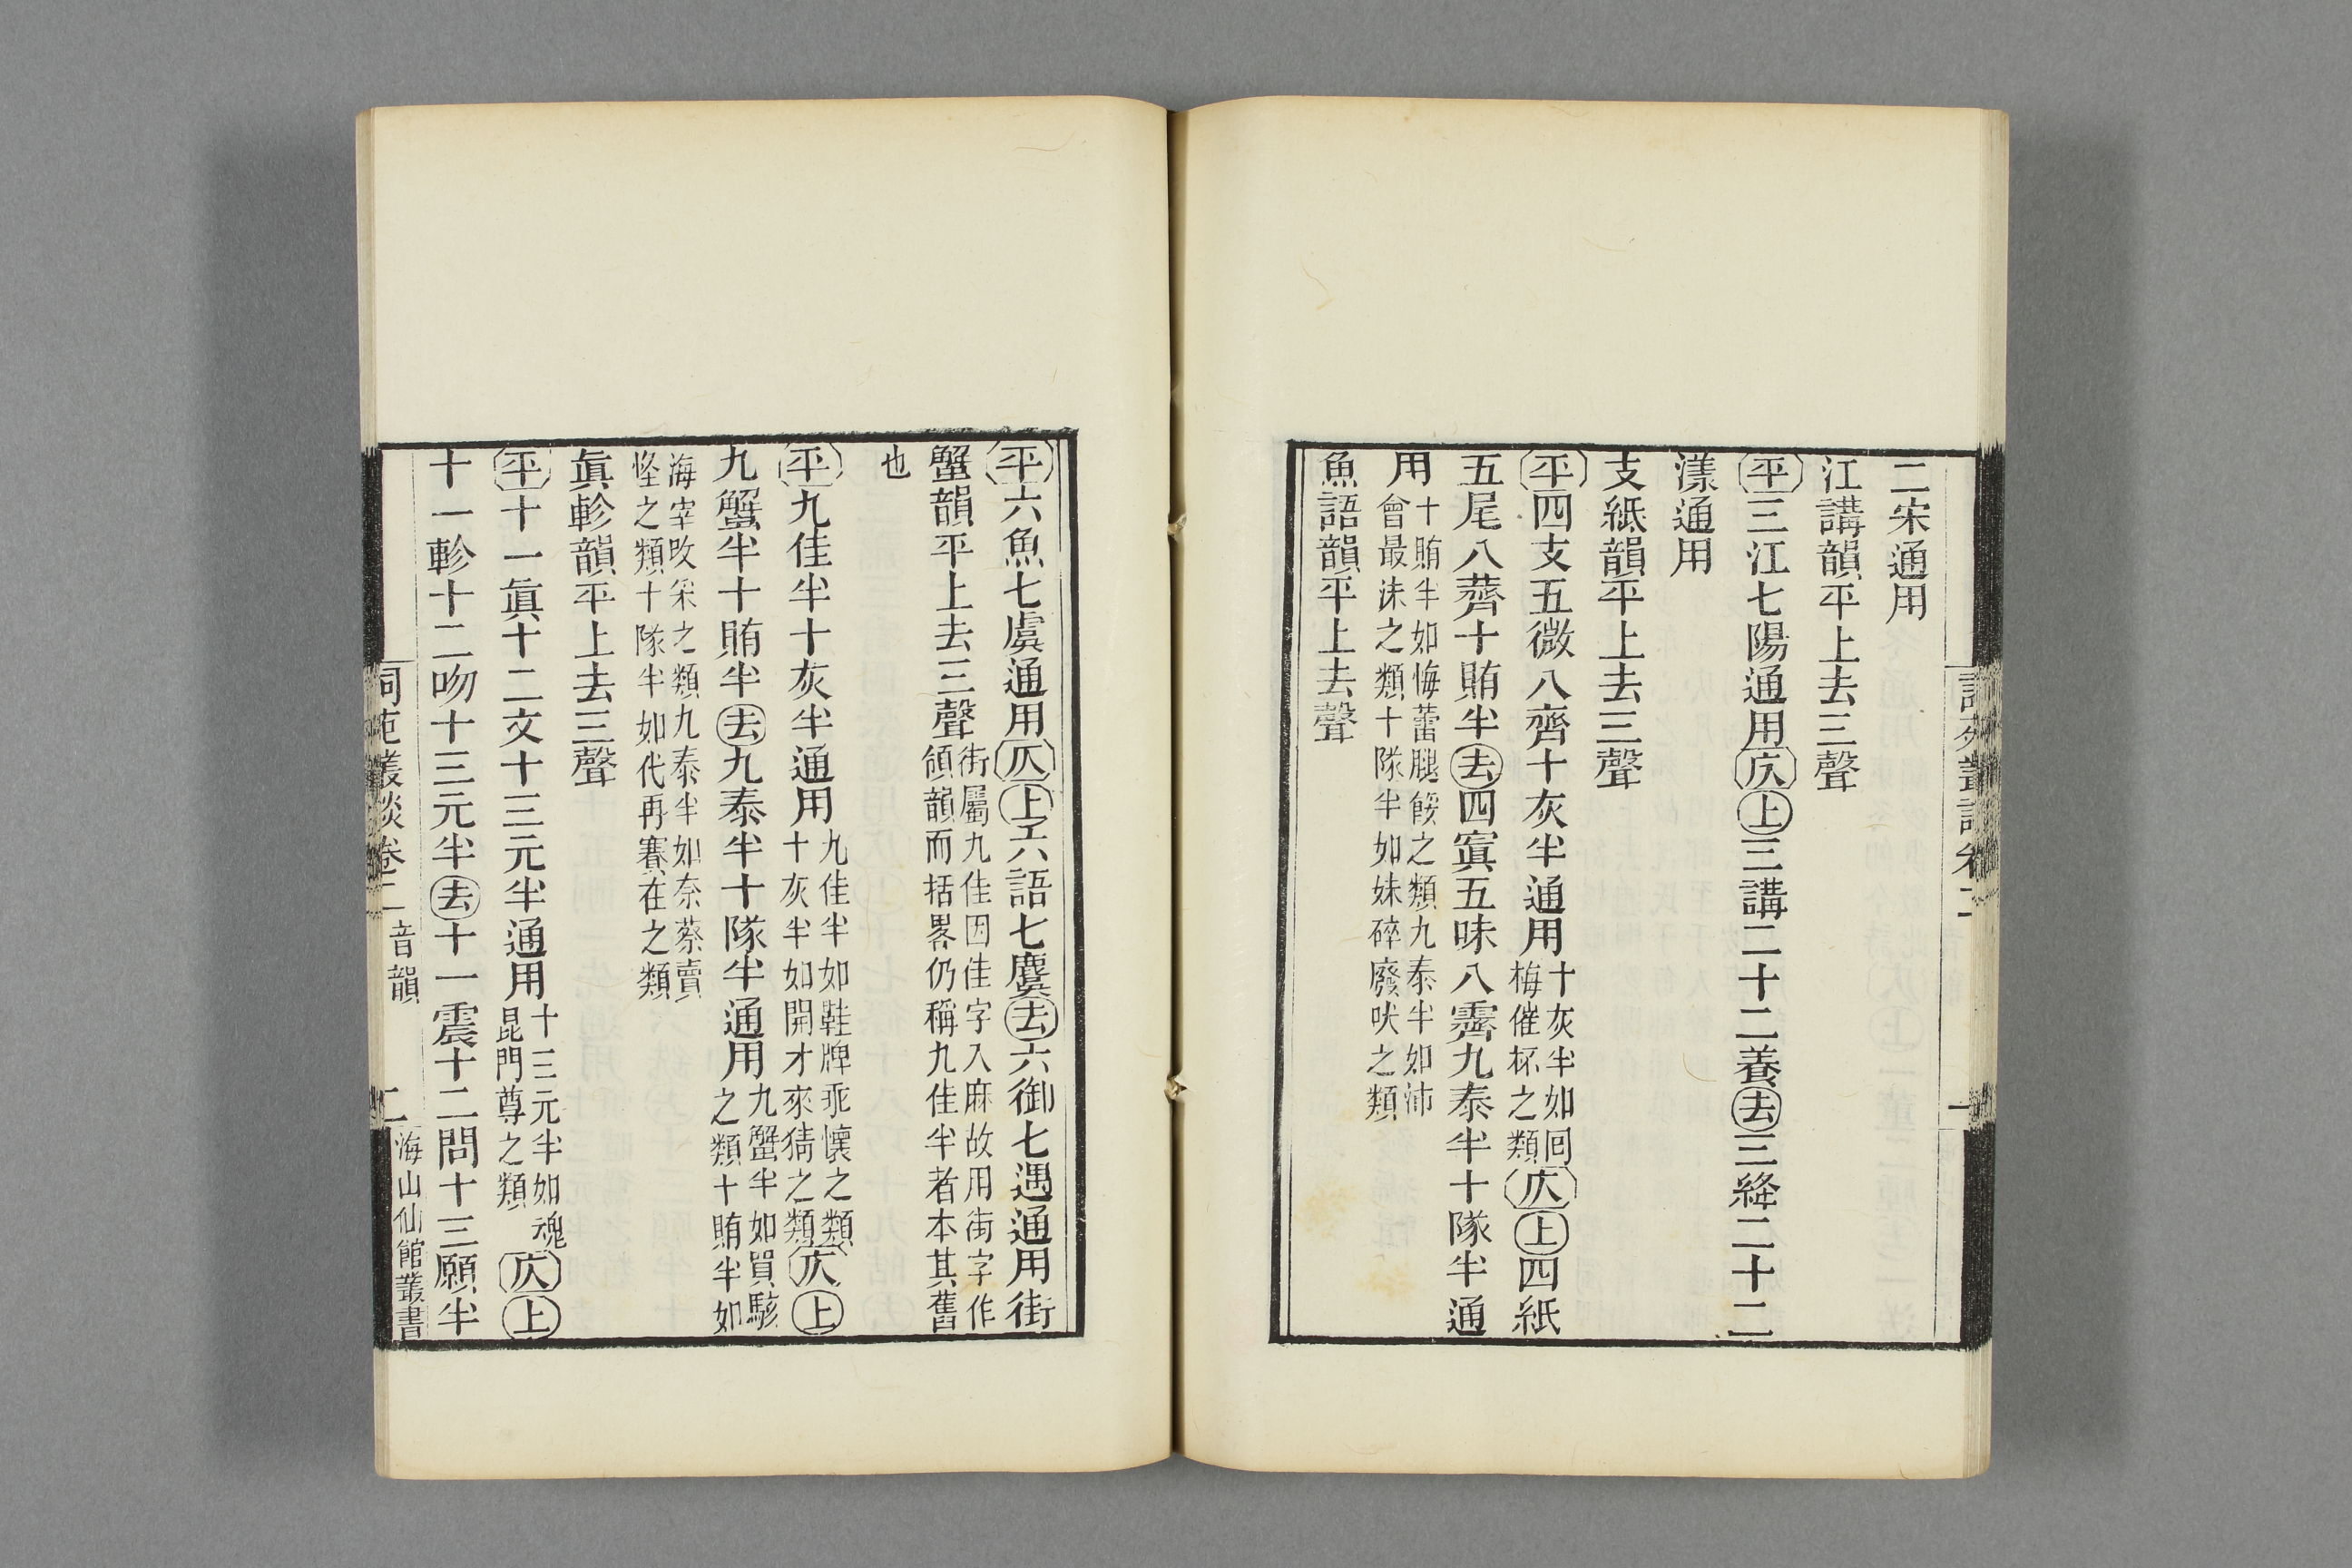 二宋通用
江講韻平上去三聲
平三江七陽通用仄上三講二十二養去三絳二十二
漾通用
支紙韻平上去三聲
平四支五微八齊十灰半通用十灰半如囘梅催杯之類仄上四紙
五尾八薺十賄半去四寘五味八霽九泰半十隊半通
用十賄半如悔蕾腿餒之類九泰半如沛會最沬之類十隊半如妹碎廢吠之類
魚語韻平上去三聲
平六魚七虞通用仄上六語七麌去六御七遇通用街
蟹韻平上去三聲街屬九佳因佳字入麻故用街字作領韻而括畧仍稱九佳半者本其舊
也
平九佳半十灰半通用九佳半如鞋牌乖懷之類十灰半如開才來猜之類仄上
九蟹半十賄半去九泰半十隊半通用九蟹半如買駭之類十賄半如
海宰改采之類九泰半如奈蔡賣怪之類十隊半如代再賽在之類
眞軫韻平上去三聲
平十一眞十二文十三元半通用十三元半如魂昆門尊之類仄上
十一軫十二吻十三元半去十一震十二問十三願半
詞苑叢談卷二 音韻 二 海山仙館叢書